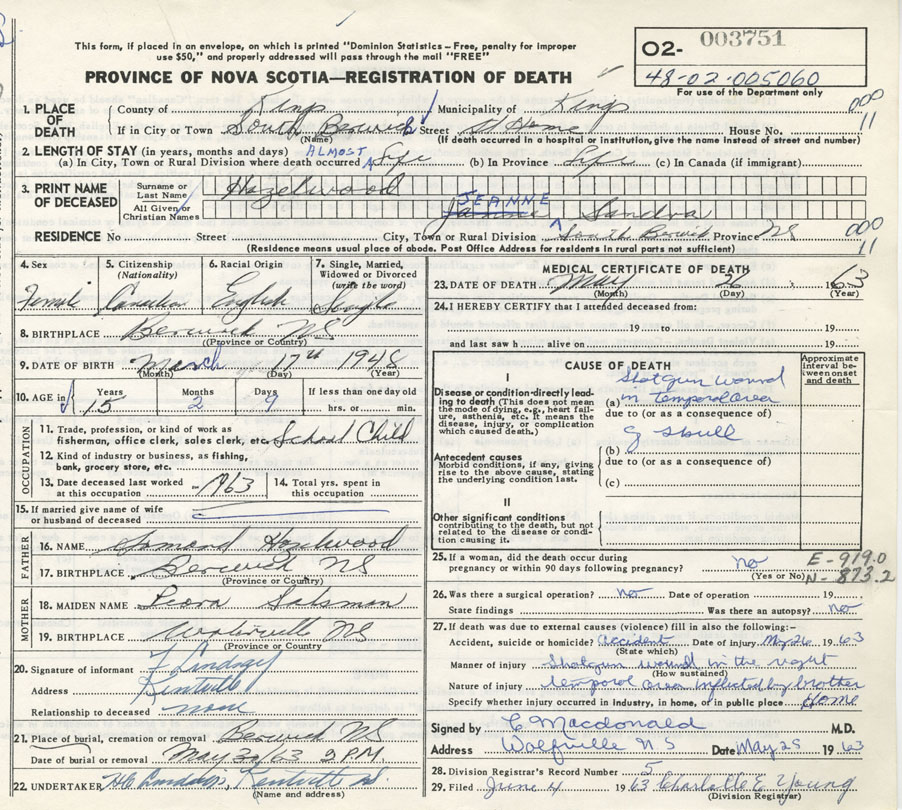 This form, if placed in an envelope, on which is printed "Dominion Statistics - Free, penalty for improper
use $50," and properly addressed will pass through the mail "FREE"
PROVINCE OF NOVA SCOTIA—REGISTRATION OF DEATH
O2- 003751
48-02-005060
For use of the Department only
1. PLACE OF DEATH
County of Kings Municipality of Kings 000
If in City or Town South Berwick Street At Home House No. 11
(Name) (If death occurred in a hospital or institution, give the name instead of street and number)
2. LENGTH OF STAY (in years, months and days) ALMOST
(a) In City, Town or Rural Division where death occurred Life (b) In Province Life (c) In Canada (if immigrant)
3. PRINT NAME OF DECEASED
Surname or Last Name Hazelwood
All Given or Christian Names JEANNE Sandra
RESIDENCE No Street City, Town or Rural Division South Berwick Province NS 000
(Residence means usual place of abode. Post Office Address for residents in rural parts not sufficient) 11
4. Sex Female
5. Citizenship (Nationality) Canadian
6. Racial Origin English
7. Single, Married, Widowed or Divorced (write the word) Single
8. BIRTHPLACE Berwick NS
(Province or Country)
9. DATE OF BIRTH March 17th 1948
(Month) (Day) (Year)
10. AGE in Years 15 Months 2 Days 9 If less than one day old hrs. or min.
OCCUPATION
11. Trade, profession, or kind of work as fisherman, office clerk, sales clerk, etc. School Child
12. Kind of industry or business, as fishing, bank, grocery store, etc.
13. Date deceased last worked at this occupation 1963
14. Total yrs. spent in this occupation
15. If married give name of wife or husband of deceased
FATHER
16. NAME Hazelwood
17. BIRTHPLACE Berwick NS
(Province or Country)
MOTHER
18. MAIDEN NAME Leora Salsman
19. BIRTHPLACE Waterville NS
(Province or Country
20. Signature of informant F Lindsay
Address Kentville
Relationship to deceased none
21. Place of burial, cremation or removal Berwick NS
Date of burial or removal 2 P.M.
22. UNDERTAKER Kentville NS
(Name and address)
MEDICAL CERTIFICATE OF DEATH
23. DATE OF DEATH May 26 1963
(Month) (Day) (Year)
24. I HEREBY CERTIFY that I attended deceased from:
19 to 19
and last saw h alive on 19
CAUSE OF DEATH
Approximate interval between onset and death
I
Disease or condition directly leading to death (This does not mean the mode of dying, e.g., heart failure, asthenia, etc. It means the disease, injury, or complication which caused death.)
Shotgun wound
(a) in temporal area
due to (or as a consequence of)
of skull
Antecedent causes
Morbid conditions, if any, giving rise to the above cause, stating the underlying condition last.
(b)
due to (or as a consequence of)
(c)
II
Other significant conditions contributing to the death, but not related to the disease or condition causing it.
25. If a woman, did the death occur during pregnancy or within 90 days following pregnancy? no
(Yes or No)
E-919.0
N-873.2
26. Was there a surgical operation? no Date of operation 19
State findings Was there an autopsy? no
27. If death was due to external causes (violence) fill in also the following:-
Accident, suicide or homicide? accident Date of injury May 26 1963
(State which)
Manner of injury Shotgun wound in the right
(How sustained)
Nature of injury temporal area inflicted by brother
Specify whether injury occurred in Industry, in home, or in public place Home
Signed by C Macdonald M.D.
Address Wolfville NS Date May 28 1963
28. Division Registrar's Record Number 5
29. Filed June 4 1963 Charlotte E Young
(Division Registrar)